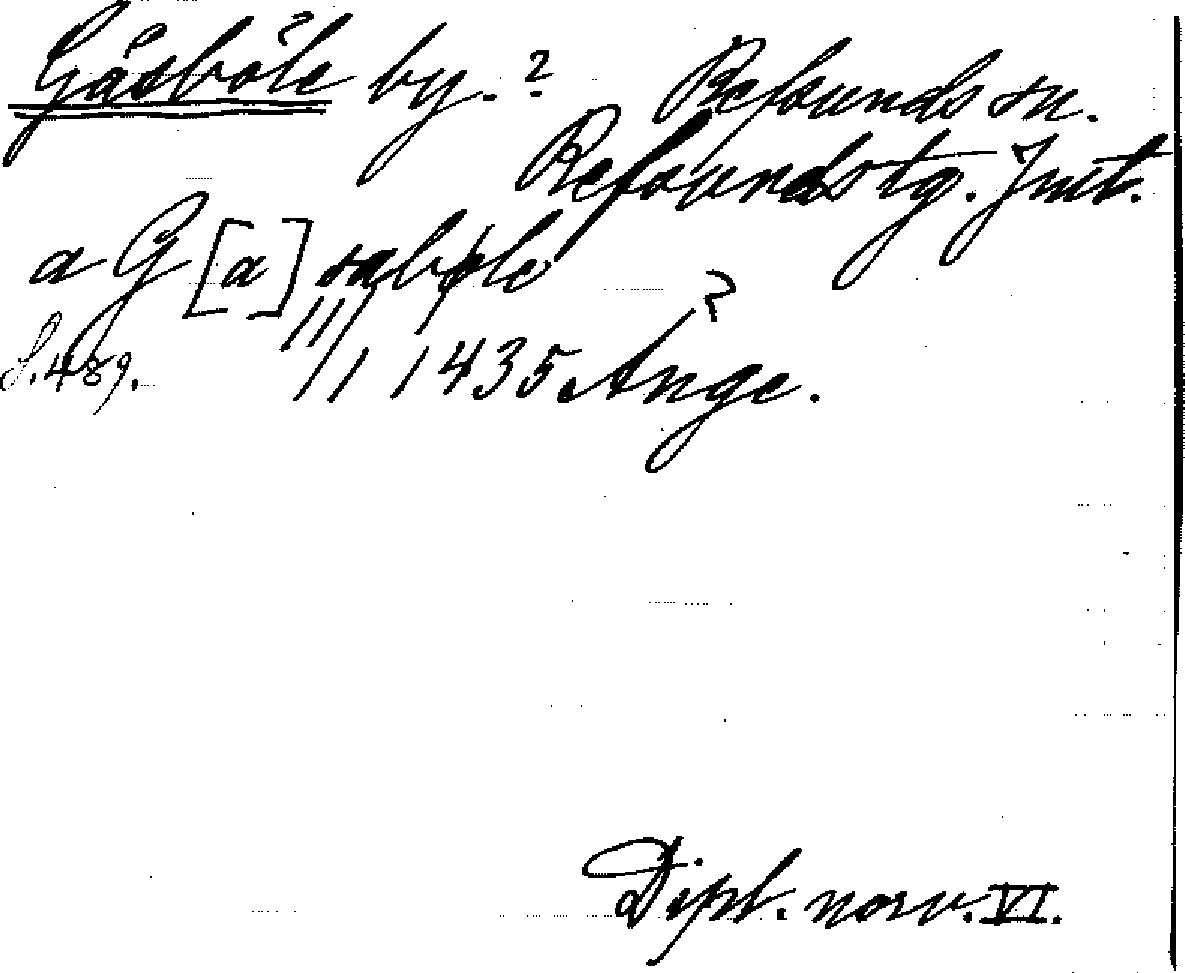 Gåsböle by. ? Refsunds sn.
Refsunds tg. Jmt.
a G[a]sabøle
S. 489. 11/1 1435 Ånge. ?
Dipl. norv. VI.